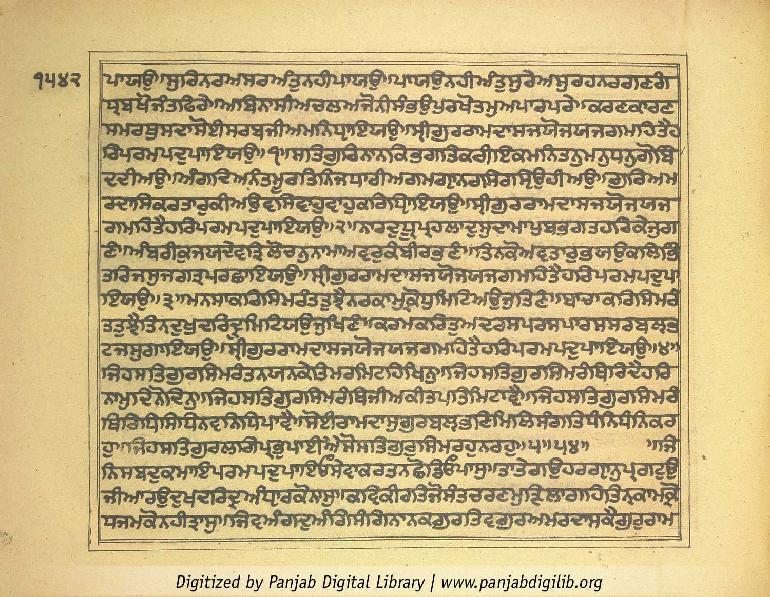 ੧੫੪੨
ਪਾਯਉ॥ਸੁਰਿਨਰਅਸੁਰਅੰਤੁਨਹੀਪਾਯਉ॥ਪਾਯਉਨਹੀਅੰਤੁਸੁਰੇਅਸੁਰਹਨਰਗਣਗੰ
ਧ੍ਰਬਖੋਜੰਤਫਿਰੇ॥ਅਬਿਨਾਸੀਅਚਲਅਜੋਨੀਸੰਭਉਪੁਰਖੋਤਮੁਅਪਾਰਪਰੇ॥ਕਰਣਕਾਰਣ
ਸਮਰਥੁਸਦਾਸੋਈਸਰਬਜੀਅਮਨਿਧ੍ਯਾਇਯਉ॥ਸ੍ਰੀਗੁਰਰਾਮਦਾਸਜਯੋਜਯਜਗਮਹਿਤੈਹ
ਰਿਪਰਮਪਦੁਪਾਇਯਉ॥੧॥ਸਤਿਗੁਰਿਨਾਨਕਿਭਗਤਿਕਰੀਇਕਮਨਿਤਨੁਮਨੁਧਨੁਗੋਬਿੰ
ਦਦੀਅਉ॥ਅੰਗਦਿਅਨੰਤਮੂਰਤਿਨਿਜਧਾਰੀਅਗਮਗ੍ਯਾਨਿਰਸਿਰਸ੍ਯਉਹੀਅਉ॥ਗੁਰਿਅਮ
ਰਦਾਸਿਕਰਤਾਰੁਕੀਅਉਵਸਿਵਾਹੁਵਾਹੁਕਰਿਧ੍ਯਾਇਯਉ॥ਸ੍ਰੀਗੁਰਰਾਮਦਾਸਜਯੋਜਯਜ
ਗਮਹਿਤੈਹਰਿਪਰਮਪਦੁਪਾਇਯਉ॥੨॥ਨਾਰਦੁਧ੍ਰੂਪ੍ਰਹਲਾਦੁਸੁਦਾਮਾਪੁਬਭਗਤਹਰਿਕੇਜੁਗ
ਣੰ॥ਅੰਬਰੀਕੁਜਯਦੇਵਤ੍ਰਿਲੋਚਨੁਨਾਮਾਅਵਰੁਕਬੀਰੁਭਣੰ॥ਤਿਨਕੌਅਵਤਾਰੁਭਯਉਕਲਿਭਿੰ
ਤਰਿਜਸੁਜਗਤ੍ਰਪਰਛਾਇਯਉ॥ਸ੍ਰੀਗੁਰਰਾਮਦਾਸਜਯੋਜਯਜਗਮਹਿਤੈਹਰਿਪਰਮਪਦੁਪਾ
ਇਯਉ॥੩॥ਮਨਸਾਕਰਿਸਿਮਰੰਤਤੁਝੈਨਰਕਾਮੁਕ੍ਰੋਧੁਮਿਟਿਅਉਜੁਤਿਣੰ॥ਬਾਚਾਕਰਿਸਿਮਰੰ
ਤਤੁਝੈਤਿਨਦੁਖੁਦਰਿਦ੍ਰੁਮਿਟਿਯਉਜੁਖਿਣੰ॥ਕਰਮਕਰਿਤੁਅਦਰਸਪਰਸਪਾਰਸਸਰਬਲ੍ਯਭ
ਟਜਸੁਗਾਇਯਉ॥ਸ੍ਰੀਗੁਰਰਾਮਦਾਸਜਯੋਜਯਜਗਮਹਿਤੈਹਰਿਪਰਮਪਦੁਪਾਇਯਉ॥੪॥
ਜਿਹਸਤਿਗੁਰਸਿਮਰੰਤਨਯਨਕੇਤਿਮਰਮਿਟਹਿਖਿਨੁ॥ਜਿਹਸਤਿਗੁਰਸਿਮਰੰਥਿਰਿਦੈਹਰਿ
ਨਾਮੁਦਿਨੋਦਿਨੁ॥ਜਿਹਸਤਿਗੁਰਸਿਮਰੰਥਿਜੀਅਕੀਤਪਤਿਮਿਟਾਵੈ॥ਜਿਹਸਤਿਗੁਰਸਿਮਰੰ
ਥਿਰਿਧਿਸਿਧਿਨਵਨਿਧਿਪਾਵੈ॥ਸੋਈਰਾਮਦਾਸੁਗੁਰੁਬਲ੍ਯਭਣਿਮਿਲਿਸੰਗਤਿਧੰਨਿਧੰਨਿਕਰ
ਹੁ॥ਜਿਹਸਤਿਗੁਰਲਗਿਪ੍ਰਭੁਪਾਈਐਸੋਸਤਿਗੁਰੁਸਿਮਰਹੁਨਰਹੁ॥੫॥੫੪॥ ॥ਜਿ
ਨਿਸਬਦੁਕਮਾਇਪਰਮਪਦੁਪਾਇਓਸੇਵਾਕਰਤਨਛੋਡਿਓਪਾਸੁ॥ਤਾਤੇਗਉਹਰੁਗ੍ਯਾਨੁਪ੍ਰਗਟੁਉ
ਜੀਆਰਉਦੁਖਦਰਿਦ੍ਰਅੰਧ੍ਯਾਰਕੋਨਾਸੁ॥ਕਵਿਕੀਰਤਜੋਸੰਤਚਰਨਮੁੜਿਲਾਗਹਿਤਿਨਕਾਮਕ੍ਰੋ
ਧਜਮਕੋਨਹੀਤ੍ਰਾਸੁ॥ਜਿਵਅੰਗਦੁਅੰਗਿਸੰਗਿਨਾਨਕਗੁਰਤਿਵਗੁਰਅਮਰਦਾਸਕੈਗੁਰੁਰਾਮ
Digitized by Panjab Digital Library | www.panjabdigilib.org